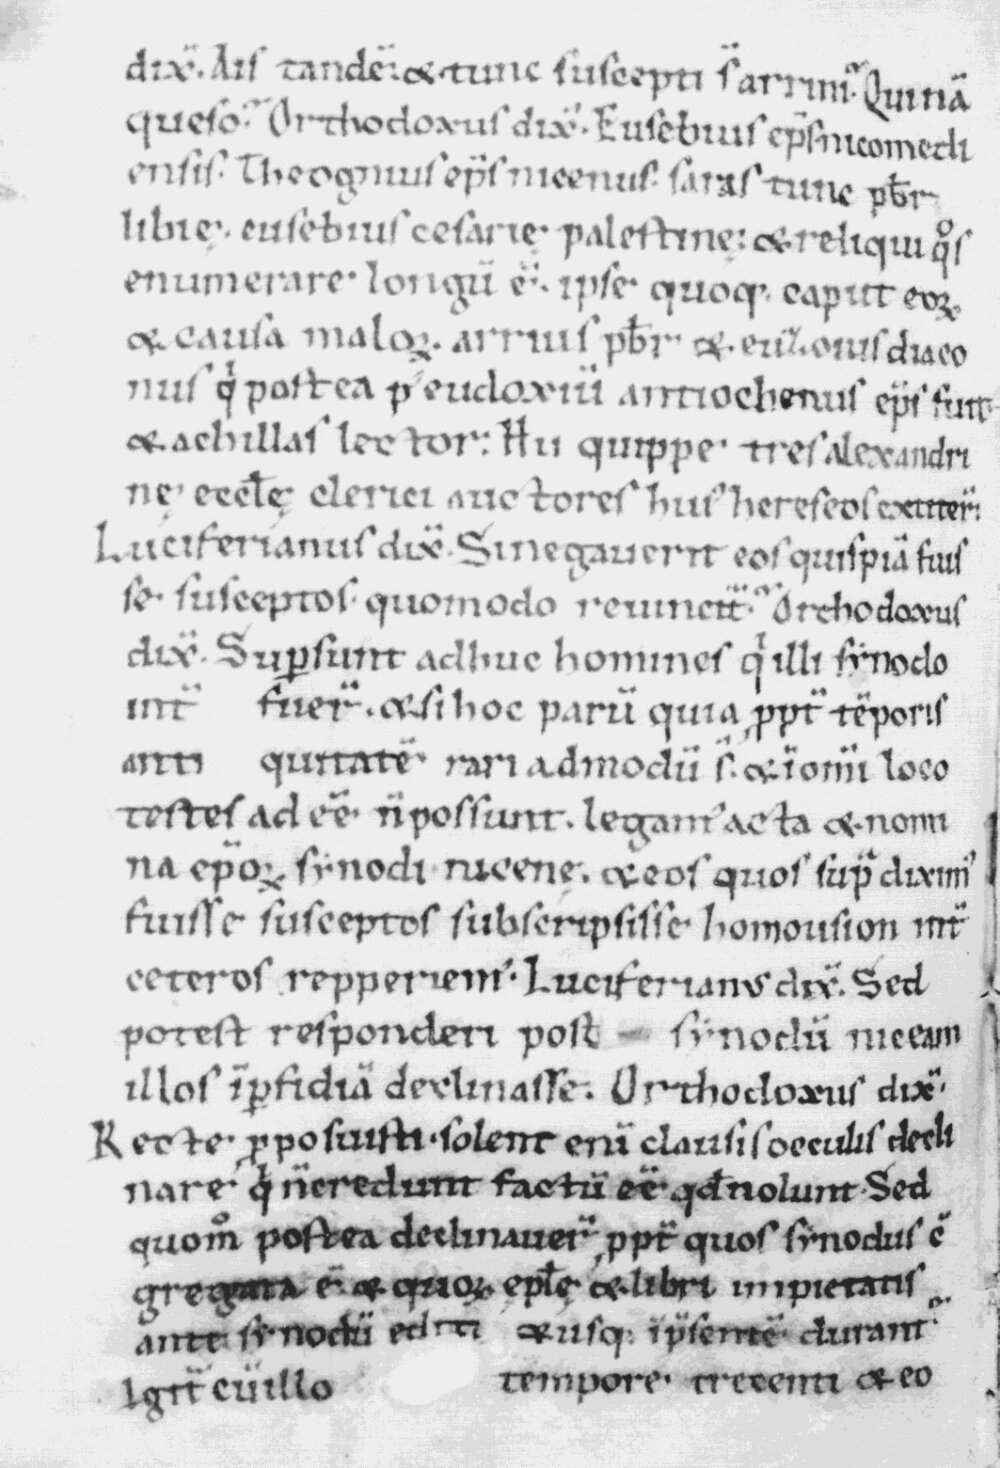 dix̄. Ais tandē: & tunc suscepti s̄ arriani? Qui nā
queso? Orthodoxus dix̄. Eusebius ep̄s nicomedi
ensis. Theognius ep̄s nicenus. saras tunc pb̄r
libię. eusebius cesarię palestinę: & reliqui qͦs
enumerare longū ē. ipse quoq. caput eoꝝ
& causa maloꝝ. arrius pb̄r & euzonius diaco
nus qⁱ postea p̄ eudoxiū antiochenus ep̄s fuit
& achillas lector: Hii quippe tres alexandri
nę eccłę clerici auctores huiꝰ hereseos extiter̄.
Luciferianus dix̄. Si negauerit eos quispiā fuis
se susceptos. quomodo reuincit̄? Orthodoxus
dix̄. Suꝑsunt adhuc homines qⁱ illi synodo
int̄ fuer̄. & si hoc parū quia ꝓpt̄ tēporis
anti quitatē rari admodū s̄. & ī om̄i loco
testes ad eē n̄ possunt. legamꝰ acta & nomi
na ep̄oꝝ synodi nicenę. & eos quos supᵃ diximꝰ
fuisse susceptos subscripsisse homousion int̄
ceteros repperiemꝰ. Luciferianus dix̄. Sed
potest responderi post synodū niceam
illos ī ꝑfidiā declinasse. Orthodoxus dix̄.
Recte ꝓposuisti. solent enī clausis oeculis decli
nare qⁱ n̄ credunt factū eē qd̄ nolunt. Sed
quom̊ postea declinauer̄ ꝓpt̄ quos synodus c̄
gregata ē. & quoꝝ epłę & libri impietatis
ante synodū editi & usq. ī p̄sentē durant
Igit̄ cū illo tempore trecenti & eo